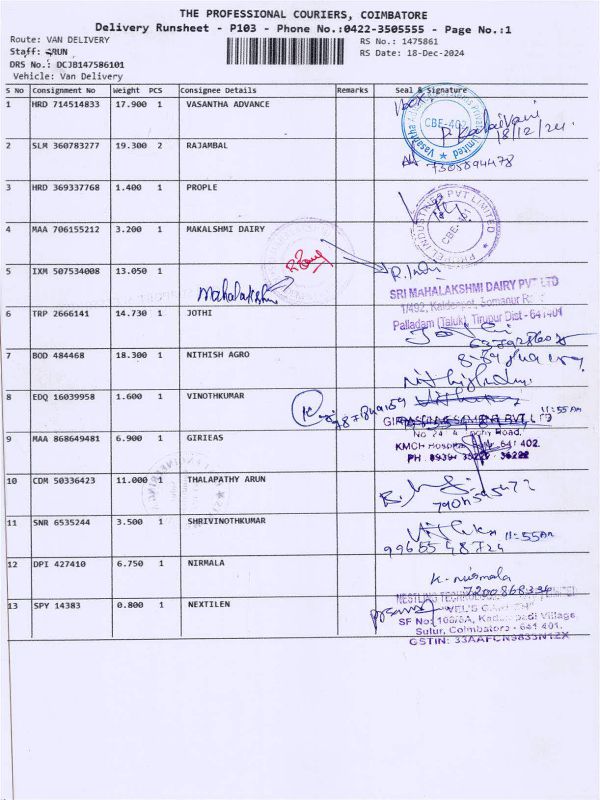 THE PROFESSIONAL COURIERS, COIMBATORE
Delivery Runsheet - P103 - Phone No.:0422-3505555 - Page No.:1
Route: VAN DELIVERY RS No.: 1475861
Staff: ARUN RS Date: 18-Dec-2024
DRS No.: DCJB147586101
Vehicle: Van Delivery
S No Consignment No Weight PCS Consignee Details Remarks Seal & Signature
1 HRD 714514833 17.900 1 VASANTHA ADVANCE
CBE-402
18/12/24
2 SLM 360783277 19.300 2 RAJAMBAL
7305894478
3 HRD 369337768 1.400 1 PROPLE
PROPEL INDUSTRIES PVT LIMITED
CBE-
4 MAA 706155212 3.200 1 MAKALSHMI DAIRY
5 IXM 507534008 13.050 1
Mahalakshmi
SRI MAHALAKSHMI DAIRY PVT LTD
1/492, Somanur
Palladam (Taluk), Tirupur Dist - 641401
6 TRP 2666141 14.730 1 JOTHI
7 BOD 484468 18.300 1 NITHISH AGRO
8 EDQ 16039958 1.600 1 VINOTHKUMAR
11:55 AM
9 MAA 868649481 6.900 1 GIRIEAS
PVT LTD
Road,
KMCH Hospital 641 402.
10 CDM 50336423 11.000 1 THALAPATHY ARUN
11 SNR 6535244 3.500 1 SHRIVINOTHKUMAR
11:55AM
99655 48724
12 DPI 427410 6.750 1 NIRMALA
K. Nirmala
13 SPY 14383 0.800 1 NEXTILEN
SF No: Village,
Sulur, Coimbatore - 641 401.
GSTIN: 33AAFCN9833N1ZX